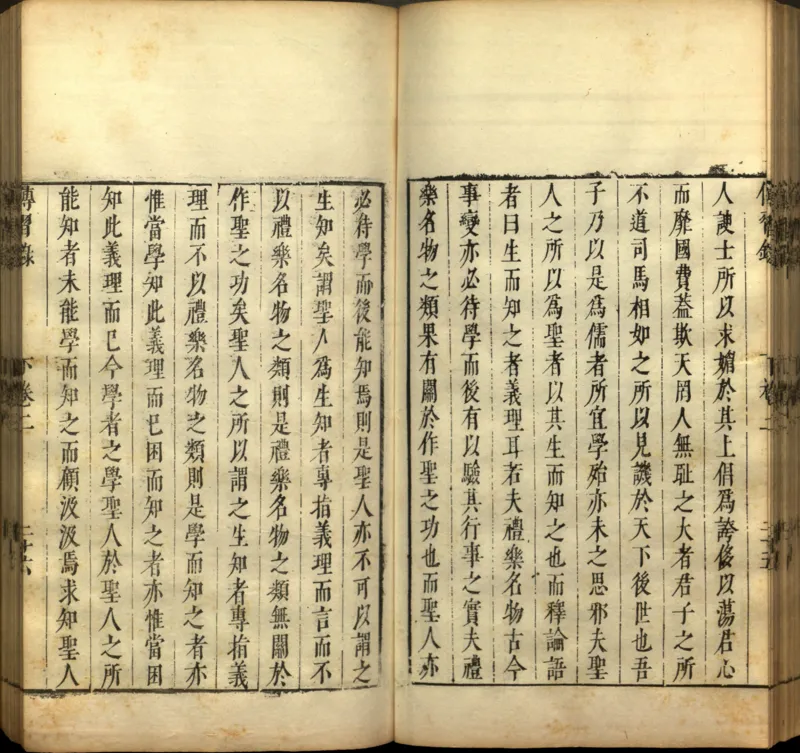 傳習錄 下卷二 二十五
人諛士所以求媚於其上倡爲誇侈以蕩君心
而靡國費蓋欺天罔人無耻之大者君子之所
不道司馬相如之所以見譏於天下後世也吾
子乃以是爲儒者所宜學殆亦未之思邪夫聖
人之所以爲聖者以其生而知之也而釋論語
者曰生而知之者義理耳若夫禮樂名物古今
事變亦必待學而後有以驗其行事之實夫禮
樂名物之類果有關於作聖之功也而聖人亦
必待學而後能知焉則是聖人亦不可以謂之
生知矣謂聖人爲生知者專指義理而言而不
以禮樂名物之類則是禮樂名物之類無關於
作聖之功矣聖人之所以謂之生知者專指義
理而不以禮樂名物之類則是學而知之者亦
惟當學知此義理而已困而知之者亦惟當困
知此義理而已今學者之學聖人於聖人之所
能知者未能學而知之而顧汲汲焉求知聖人
傳習錄 下卷二 二十六